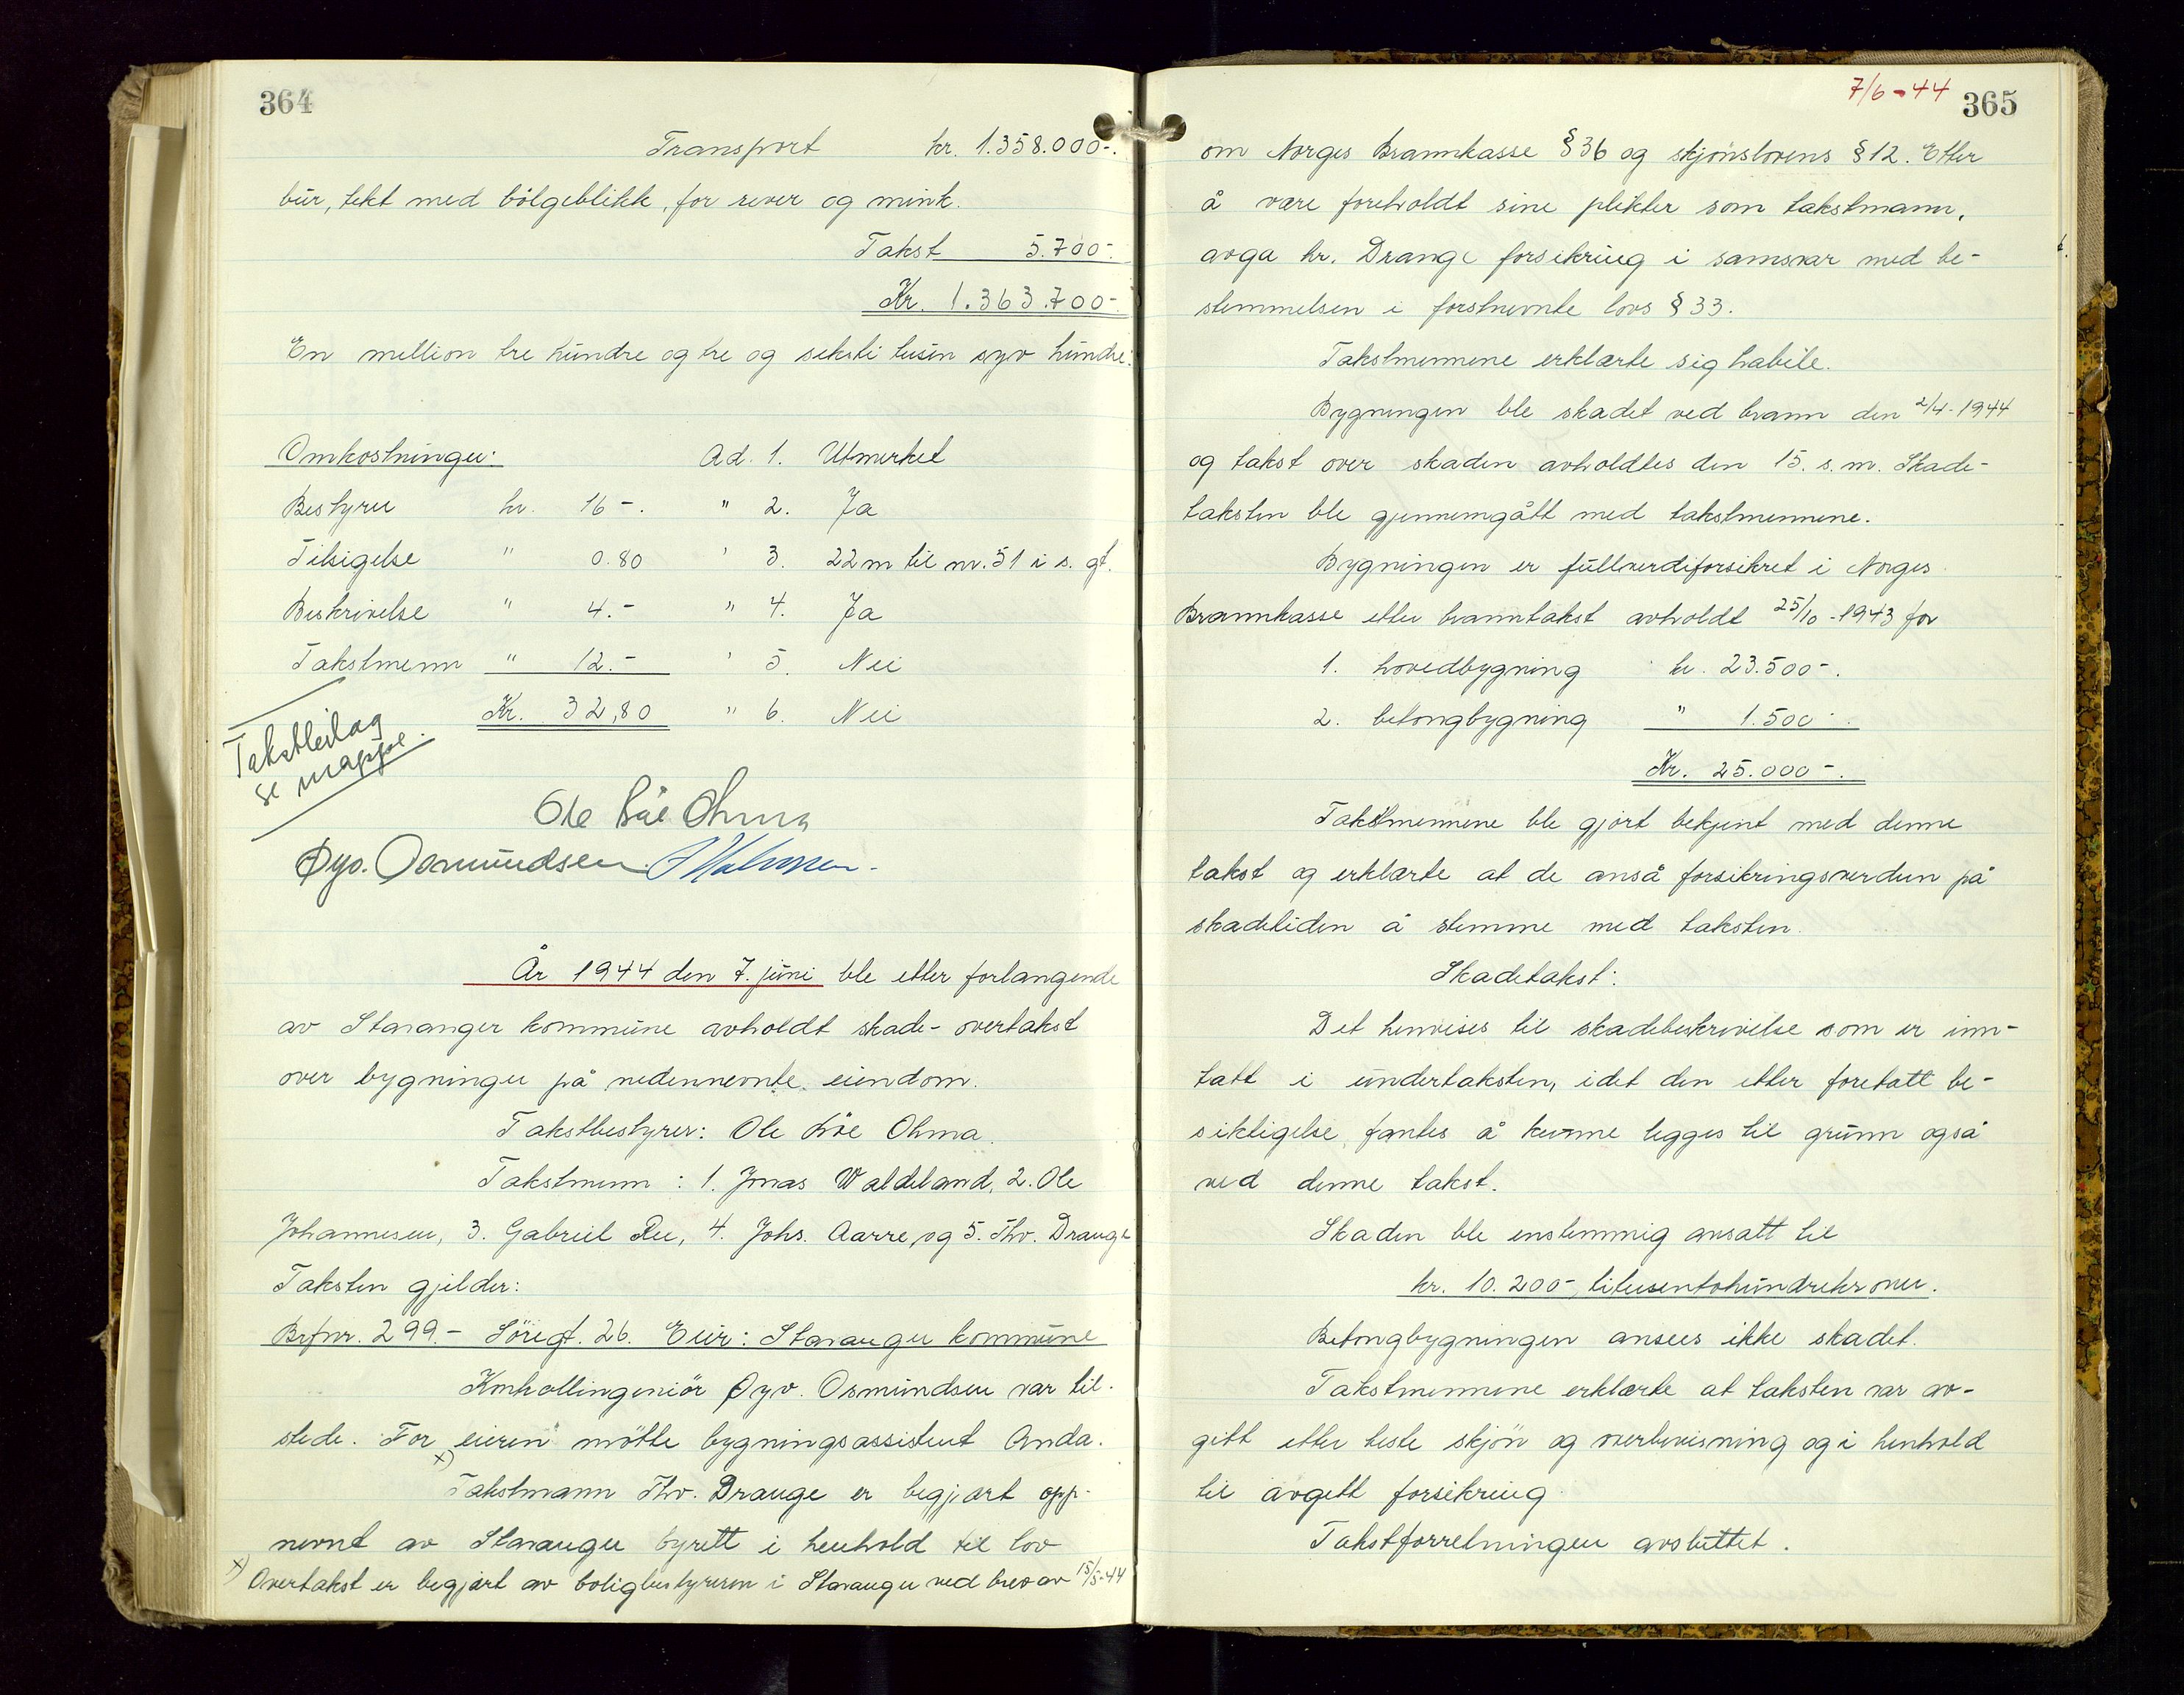 364
Transport kr. 1.358.000-.
bur, tekt med bölgeblikk, for rever og mink.
Takst 5.700-.
Kr. 1.363.700-.
En million tre hundre og tre og seksti tusen syv hundre.
Omkostninger: Ad. 1. Utmerket
Bestyrer kr. 16-. " 2. Ja
Tilsigelse " 0.80 " 3. 22 m til nr. 51 i s. gt.
Beskrivelse " 4.- " 4. Ja
Takstmenn " 12.- " 5. Nei
Kr. 32,80 " 6. Nei
Takstbilag
se mappe.
Ole Ohma
Øyv. Osmundsen
År 1944 den 7. juni ble etter forlangende
av Stavanger kommune avholdt skade-overtakst
over bygninger på nedennevnte eiendom.
Takstbestyrer: Ole Ohma.
Takstmenn : 1. Jonas Waldeland, 2. Ole
Johannesen, 3. Gabriel Ree, 4. Johs. Aarre, og 5. Thv. Drange
Taksten gjelder:
Brfnr. 299.- Söregt. 26. Eier: Stavanger kommune
Kontrollingeniör Øyv. Osmundsen var til-
stede. For eieren mötte bygningsassistent Anda.
x)
Takstmann Thv. Drange er begjært opp-
nevnt av Stavanger byrett i henhold til lov
x) Overtakst er begjært av boligbestyreren i Stavanger ved brev av 15/5-44
7/6-44 365
om Norges Brannkasse § 36 og skjönslovens § 12. Etter
å være foreholdt sine plikter som takstmann,
avga hr. Drange forsikring i samsvar med be-
stemmelsen i förstnevnte lovs § 33.
Takstmennene erklærte sig habile.
Bygningen ble skadet ved brann den 2/4-1944
og takst over skaden avholdtes den 15. s. m. Skade-
taksten ble gjennemgått med takstmennene.
Bygningen er fullverdiforsikret i Norges
Brannkasse etter branntakst avholdt 25/10-1943 for
1. hovedbygning kr. 23.500-.
2. betongbygning " 1.500-.
Kr. 25.000-.
Takstmennene ble gjort bekjent med denne
takst og erklærte at de anså forsikringsverdien på
skadetiden å stemme med taksten.
Skadetakst:
Det henvises til skadebeskrivelse som er inn-
tatt i undertaksten, idet den etter foretatt be-
siktigelse fantes å kunne legges til grunn også
ved denne takst.
Skaden ble enstemmig ansatt til
kr. 10.200-, titusentohundrekroner.
Betongbygningen ansees ikke skadet.
Takstmennene erklærte at taksten var av-
gitt etter beste skjön og overbevisning og i henhold
til avgitt forsikring.
Takstforretningen avsluttet.